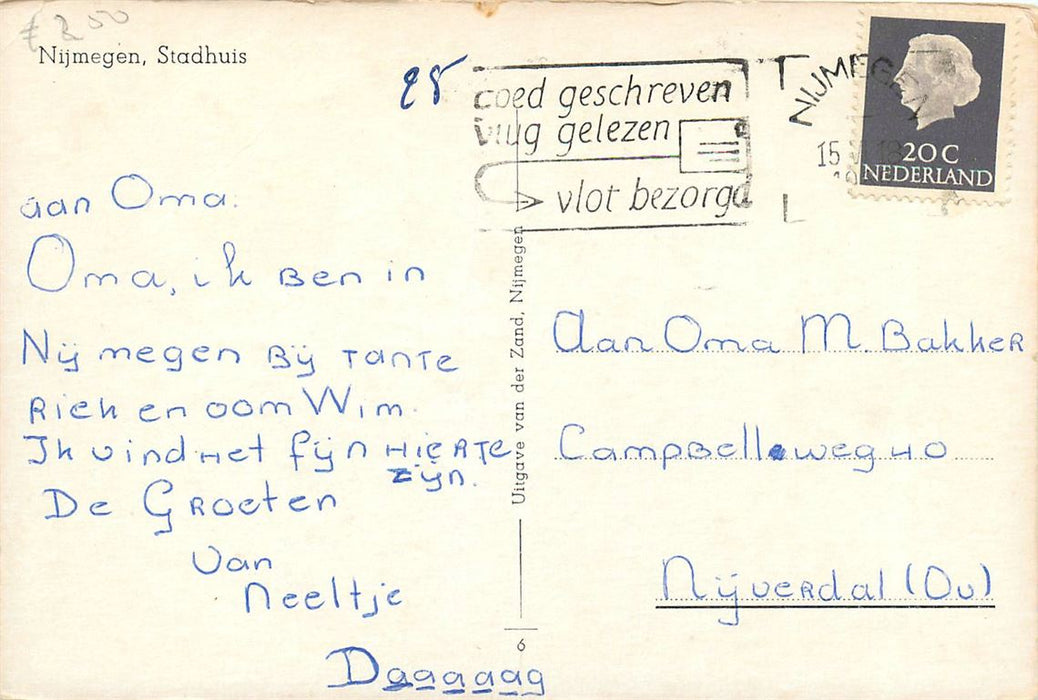 € 2,00
Nijmegen, Stadhuis
28
goed geschreven
vlug gelezen
vlot bezorgd
NIJMEGEN
15
18
20 C
NEDERLAND
aan Oma.
Oma, ik Ben in
Nijmegen Bij TanTe
Riek en oom Wim.
Ik vind het fijn HiERTE
zijn.
De Groeten
van
Neeltje
Daaaaag
Uitgave van der Zand, Nijmegen
6
Aan Oma M. Bakker
Campbellweg 40
Nijverdal (Ov)